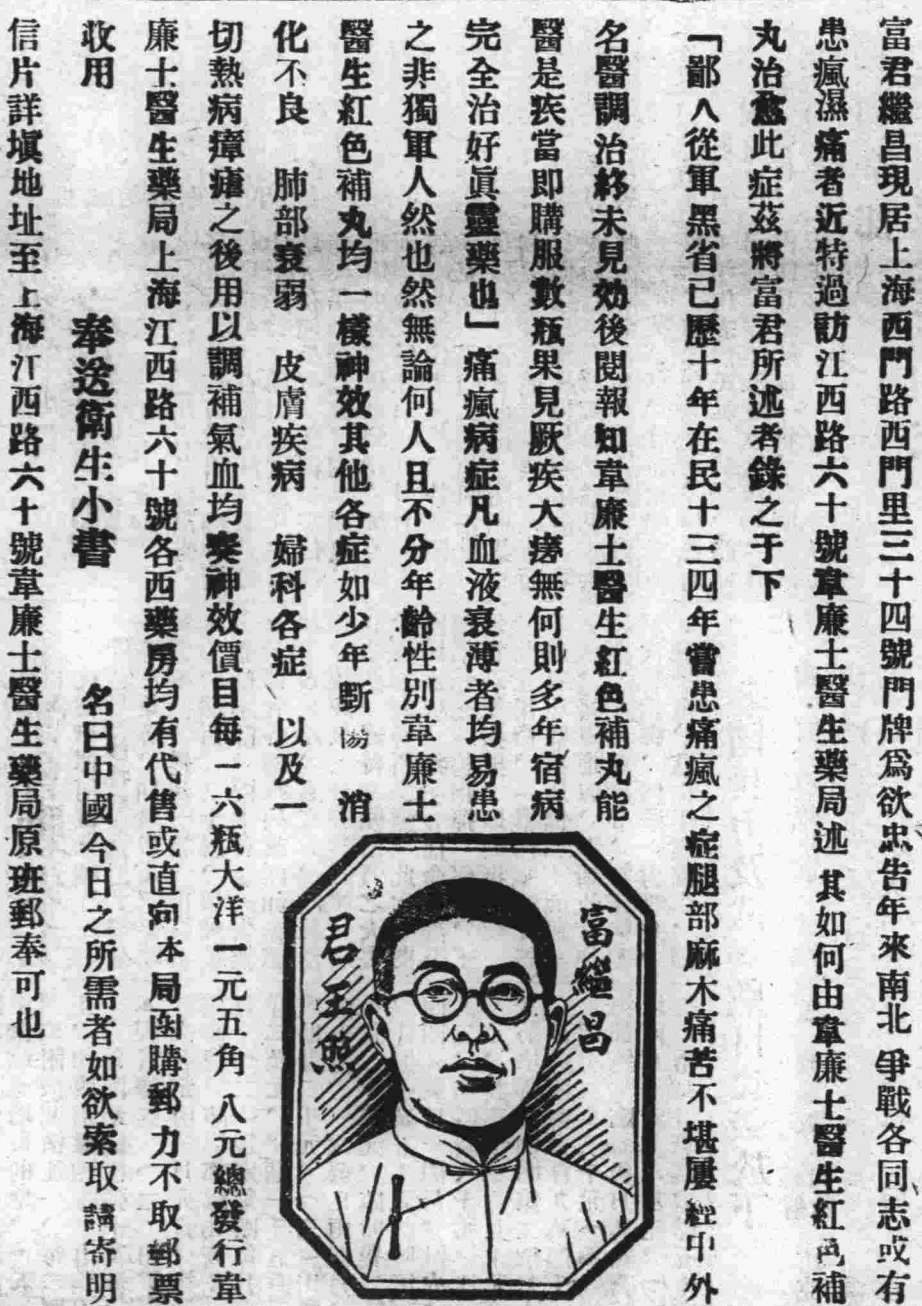 富君繼昌現居上海西門路西門里三十四號門牌爲欲忠告年來南北爭戰各同志或有
患瘋濕痛者近特過訪江西路六十號韋廉士醫生藥局述其如何由韋廉士醫生紅色補
丸治愈此症茲將富君所述者錄之于下
「鄙人從軍黑省已歷十年在民十三四年嘗患痛瘋之症腿部麻木痛苦不堪屢經中外
名醫調治終未見効後閱報知韋廉士醫生紅色補丸能
醫是疾當即購服數瓶果見厥疾大瘳無何則多年宿病
完全治好眞靈藥也」痛瘋病症凡血液衰薄者均易患
之非獨軍人然也然無論何人且不分年齡性別韋廉士
醫生紅色補丸均一樣神效其他各症如少年斲傷 消
化不良 肺部衰弱 皮膚疾病 婦科各症 以及一
切熱病瘴瘧之後用以調補氣血均奏神效價目每一六瓶大洋一元五角八元總發行韋
廉士醫生藥局上海江西路六十號各西藥房均有代售或直向本局函購郵力不取郵票
收用
奉送衛生小書 名曰中國今日之所需者如欲索取請寄明
信片詳塡地址至上海江西路六十號韋廉士醫生藥局原班郵奉可也
富繼昌
君玉照